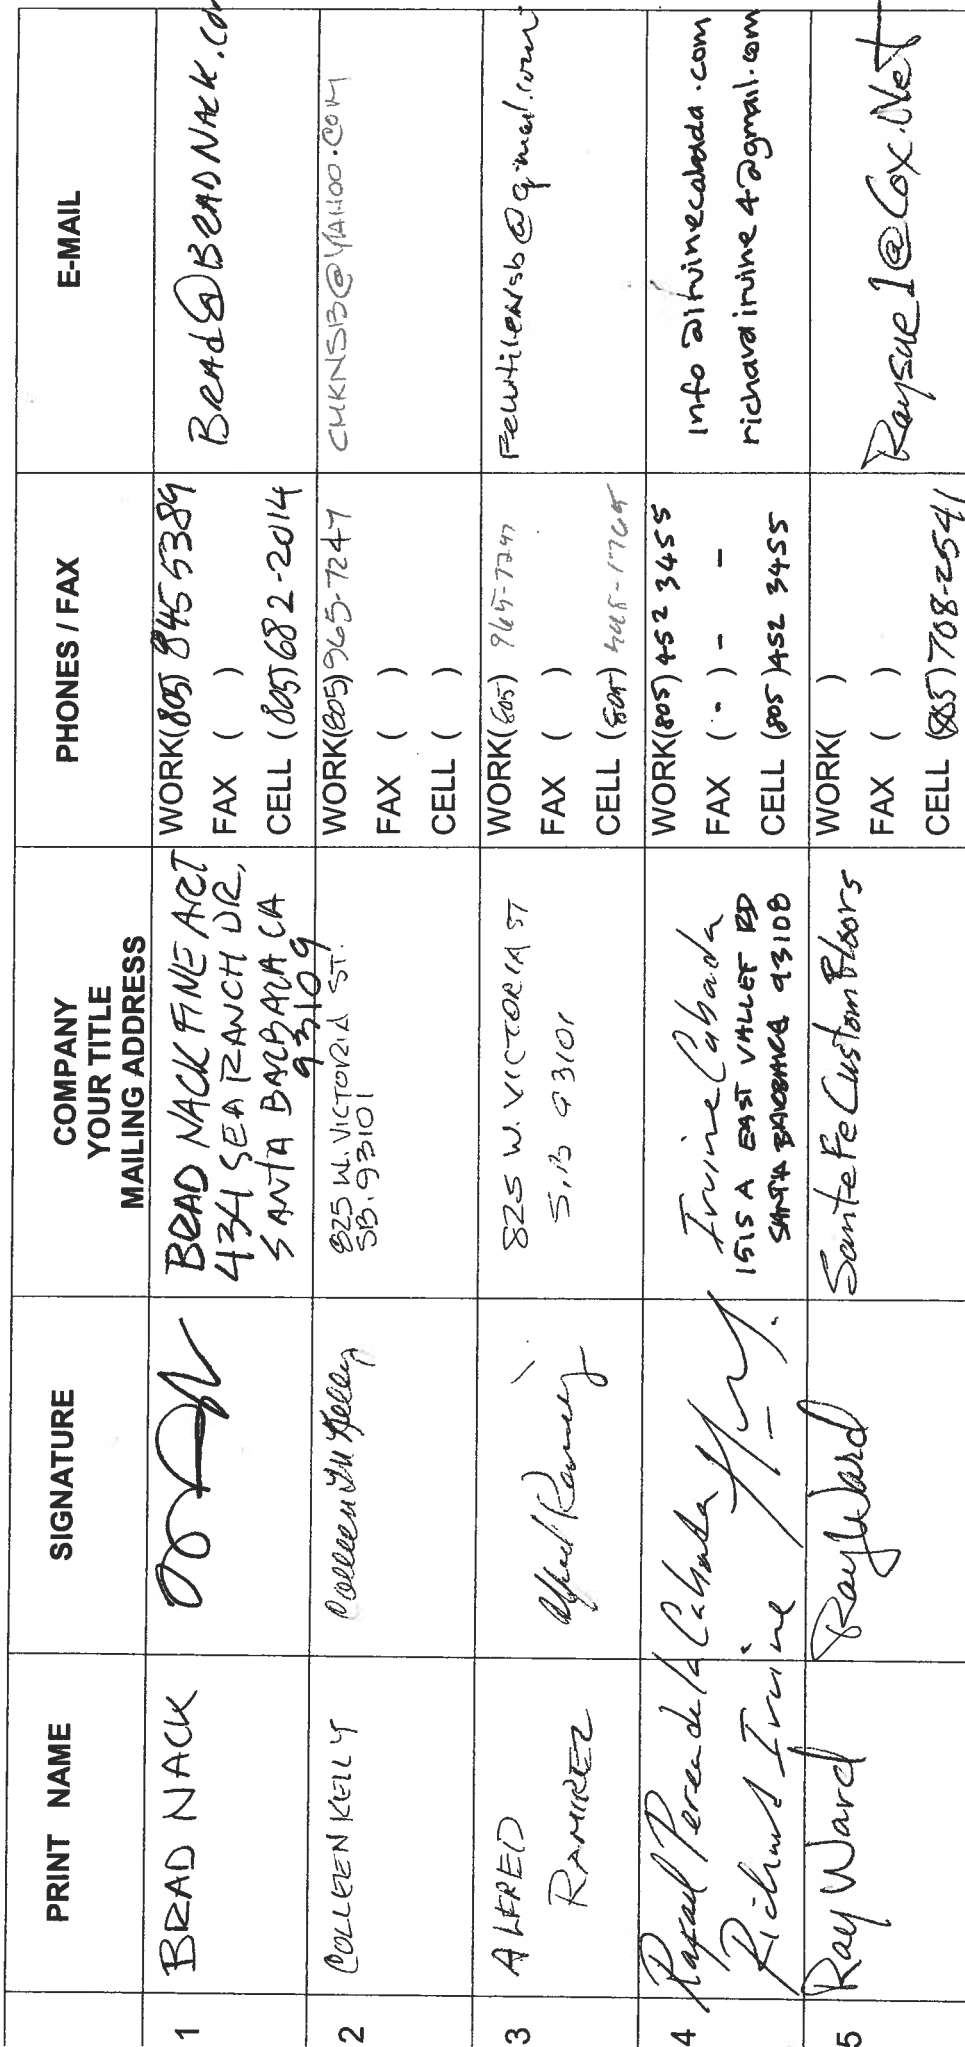 PRINT NAME
SIGNATURE
COMPANY
YOUR TITLE
MAILING ADDRESS
PHONES / FAX
E-MAIL
1
BRAD NACK
BRAD NACK FINE ART
434 SEA RANCH DR,
SANTA BARBARA CA
93109
WORK(805) 845 5389
FAX ( )
CELL (805) 682-2014
BRAd@BRADNACK.co
2
COLLEEN KELLY
Colleen M Kelley
825 W. VICTORIA ST.
SB. 93101
WORK(805) 965-7247
FAX ( )
CELL ( )
CMKNSB@YAHOO.COM
3
ALFRED
RAMIREZ
Alfred Ramirez
825 W. VICTORIA ST
S.B 93101
WORK(805) 965-7247
FAX ( )
CELL (805)
@gmail.com
4
Rafael Perea de la Cabada
Richard Irvine
Irvine Cabada
1515 A EAST VALLEY RD
SANTA BARBARA 93108
WORK(805) 452 3455
FAX ( - ) - -
CELL (805) 452 3455
info @irvinecabada.com
richardirvine4@gmail.com
5
Ray Ward
Ray Ward
Sante Fe Custom Floors
WORK( )
FAX ( )
CELL (805) 708-2541
Raysue1@Cox.Net